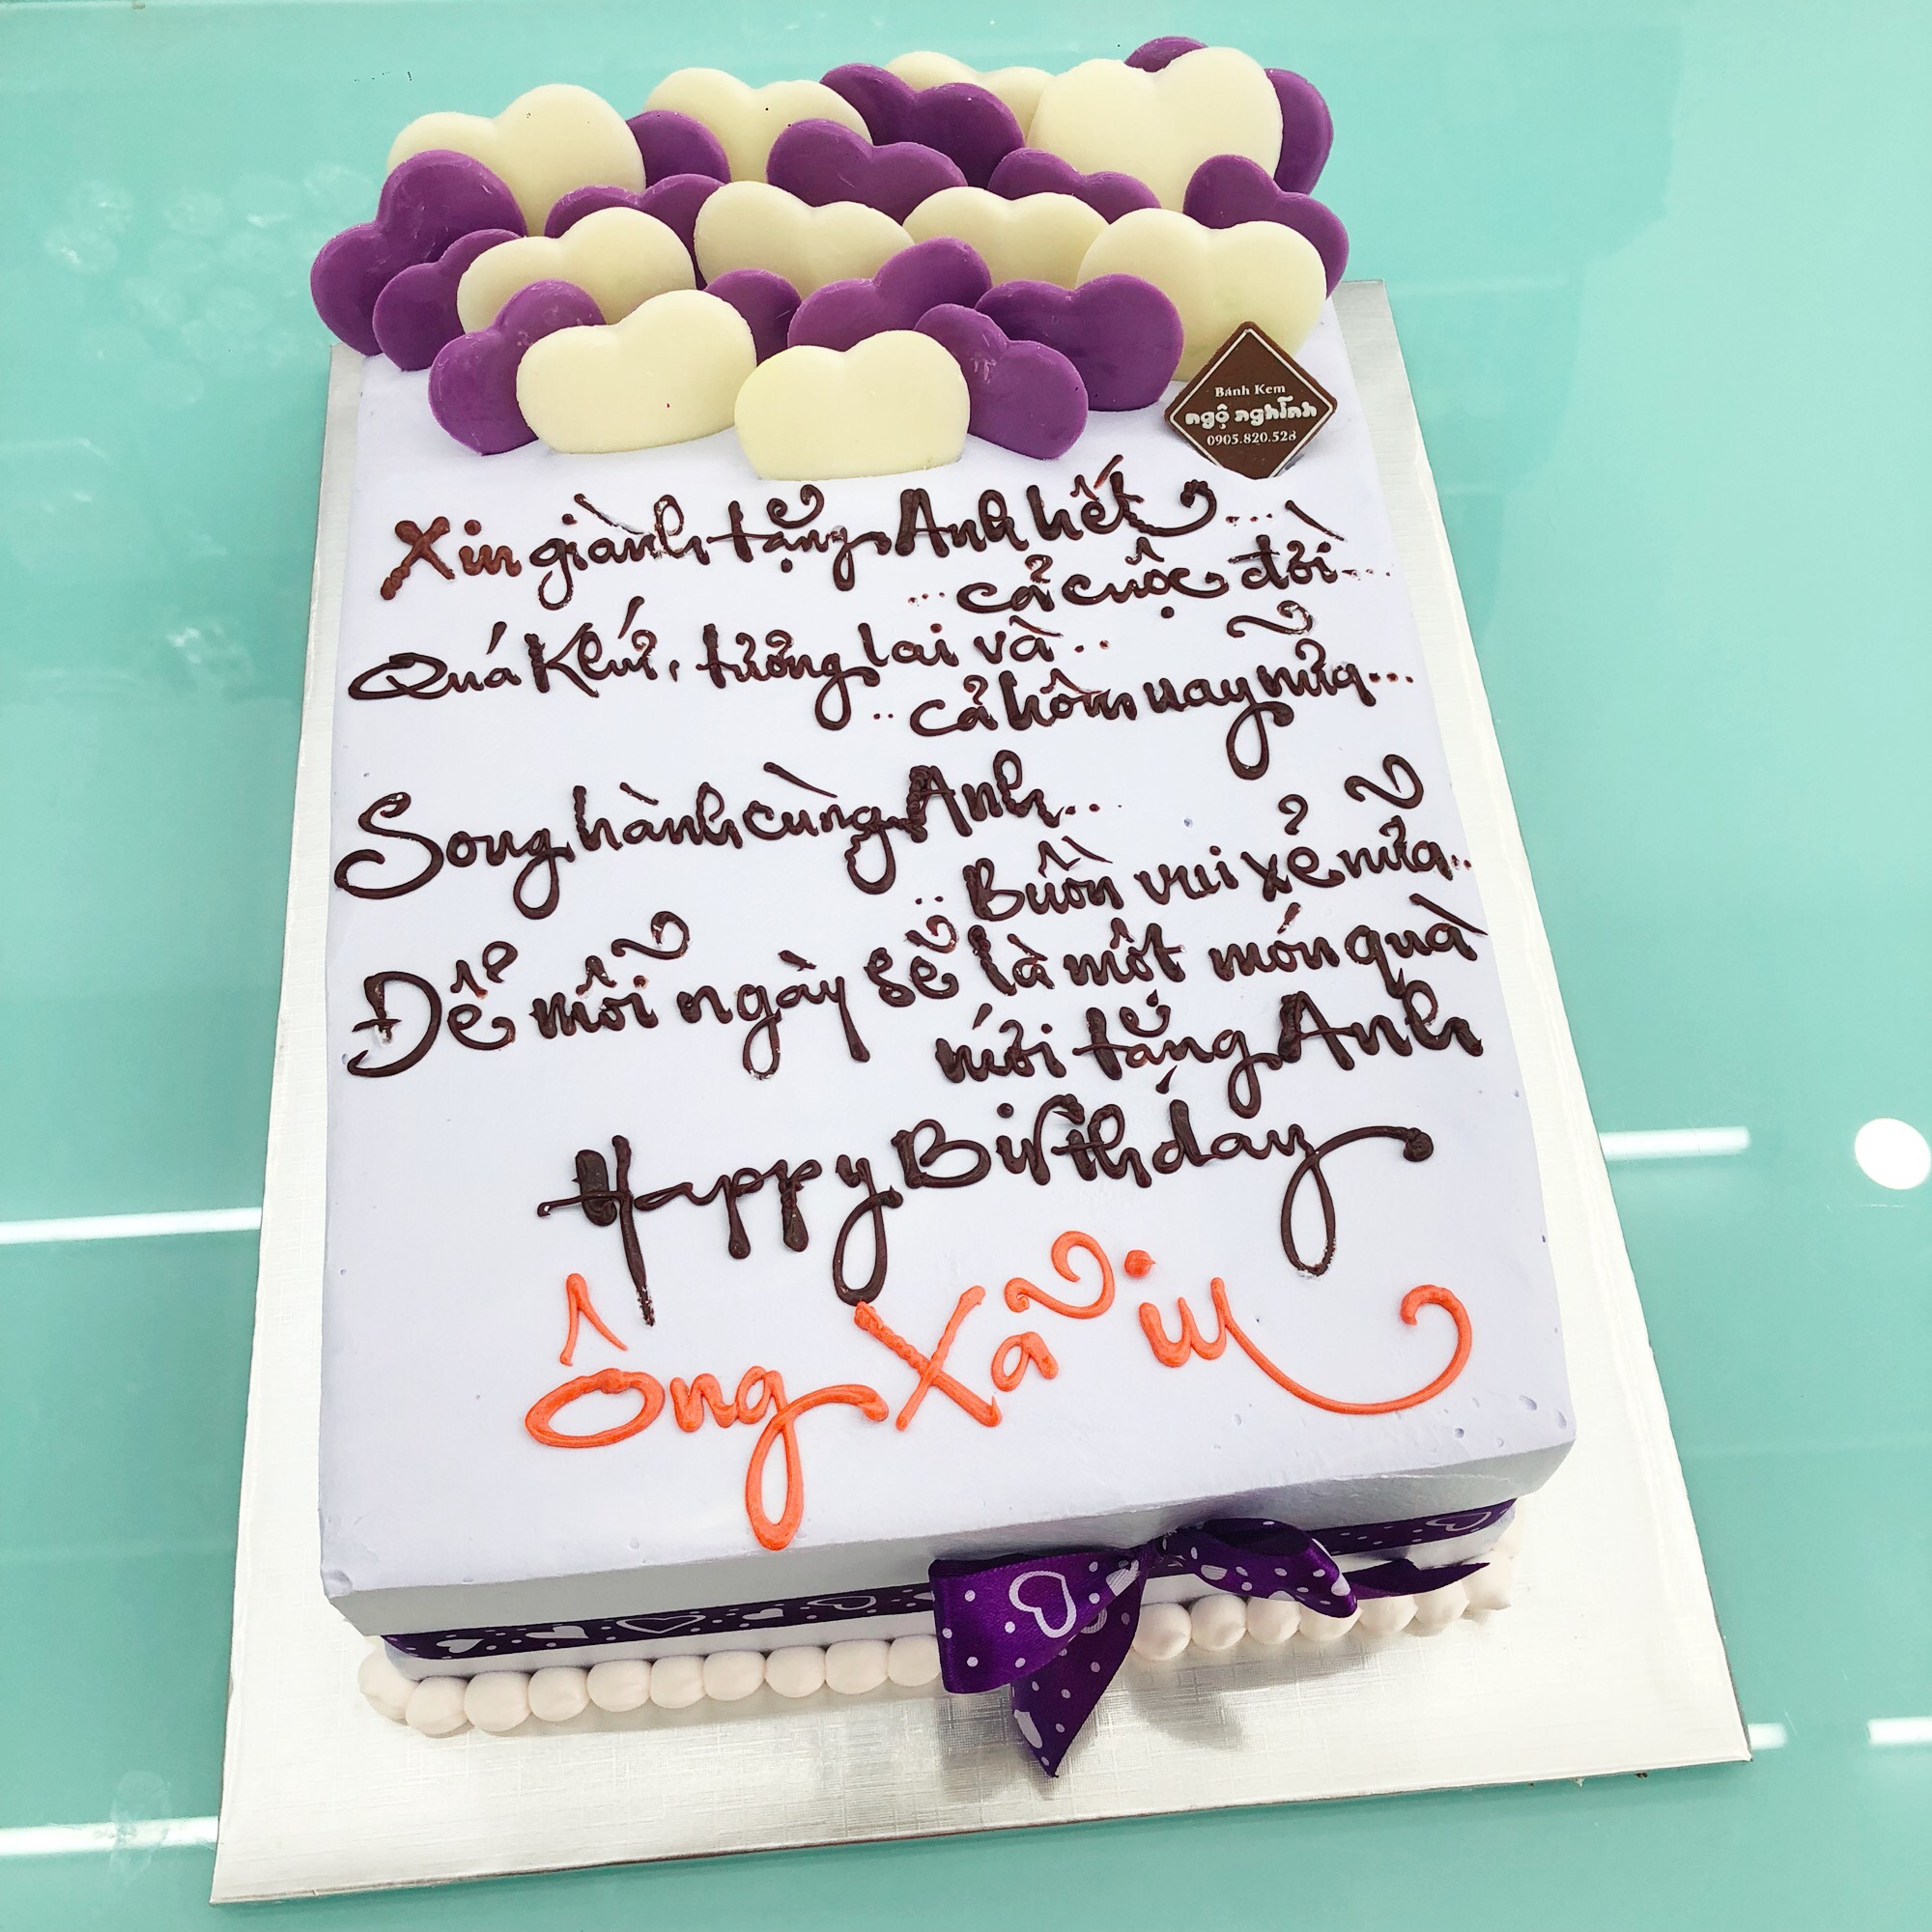 Bánh Kem
ngộ nghĩnh
0905.820.528
Xin giành tặng Anh hết...
... cả cuộc đời...
Quá Khứ, tưởng lai và...
.. cả hôm nay nữa...
Song hành cùng Anh...
.. Buồn vui xẻ nữa..
Để mỗi ngày sẽ là một món quà
mới tặng Anh
Happy Birthday
Ông Xã iu